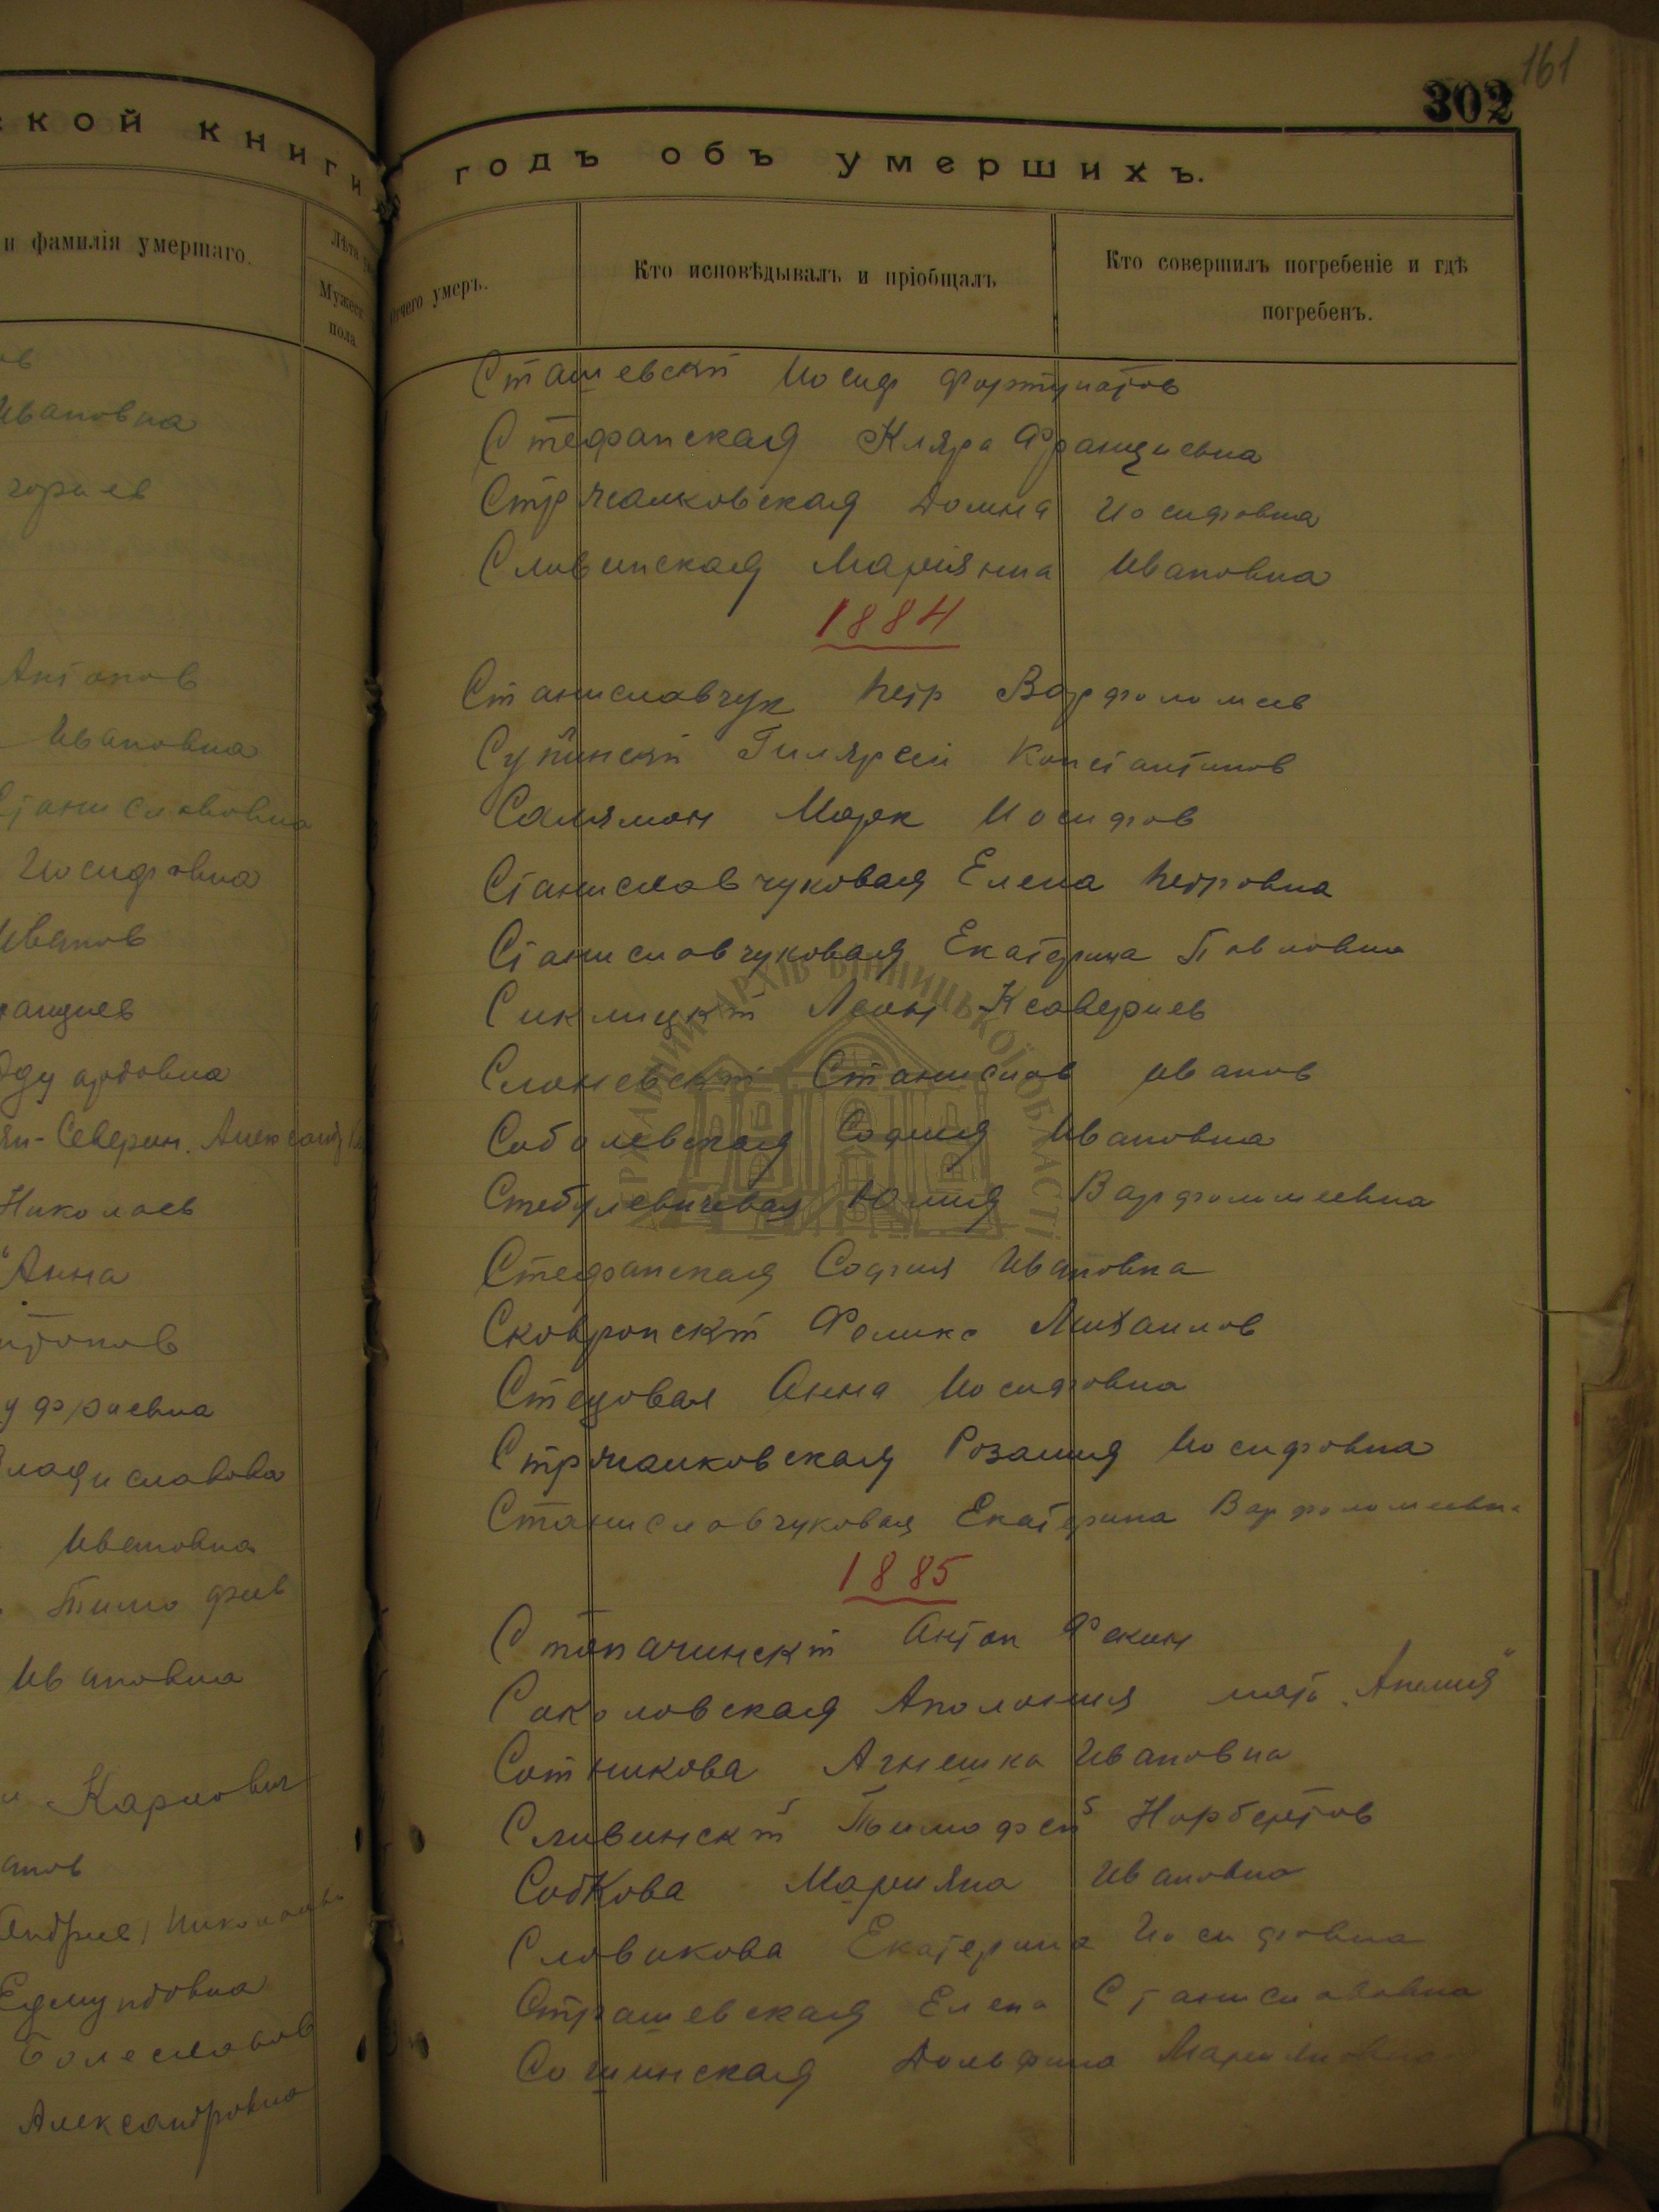 ской книги
и фамилія умершаго.
Мужеск.
пола.
Ивановна
Антонов
Ивановна
Станиславовна
Иосифовна
Иванов
Едуардовна
Северин. Александр
Николаев
Анна
Владиславова
Ивановна
Тимофеев
Ивановна
Карлович
Едмундовна
Болеславов
Александровна
161
302
годъ объ умершихъ.
Отчего умеръ.
Кто исповѣдывалъ и пріобщалъ
Кто совершилъ погребеніе и гдѣ
погребенъ.
Сташевскй Иосиф Фортунатов
Стефанская Кляра Францševna
Стржалковская Домна Иосифовна
Сливинская Мариянна Ивановна
1884
Станиславчук Петр Варфоломеев
Супинский Гилярий Константинов
Салямон Марк Иосифов
Станиславчуковая Елена Петровна
Станиславчуковая Екатерина Павловна
Сиклицкй Леон Ксавериев
Слоневскй Станислав Иванов
Соболевская София Ивановна
Стебулевичевая Юлия Варфоломеевна
Стефанская София Ивановна
Сковронскй Феликс Михаилов
Стецовая Анна Иосифовна
Стржалковская Розалия Иосифовна
Станиславчуковая Екатерина Варфоломеевна
1885
Стопачинскй Антон
Соколовская Аполония мать "Анелия"
Сотникова Агнешка Ивановна
Сливинскй Тимофей Норбертов
Собкова Марияна Ивановна
Словикова Екатерина Иосифовна
Страшевская Елена Станиславовна
Сошинская Дольфина
ДЕРЖАВНИЙ АРХІВ ВІННИЦЬКОЇ ОБЛАСТІ